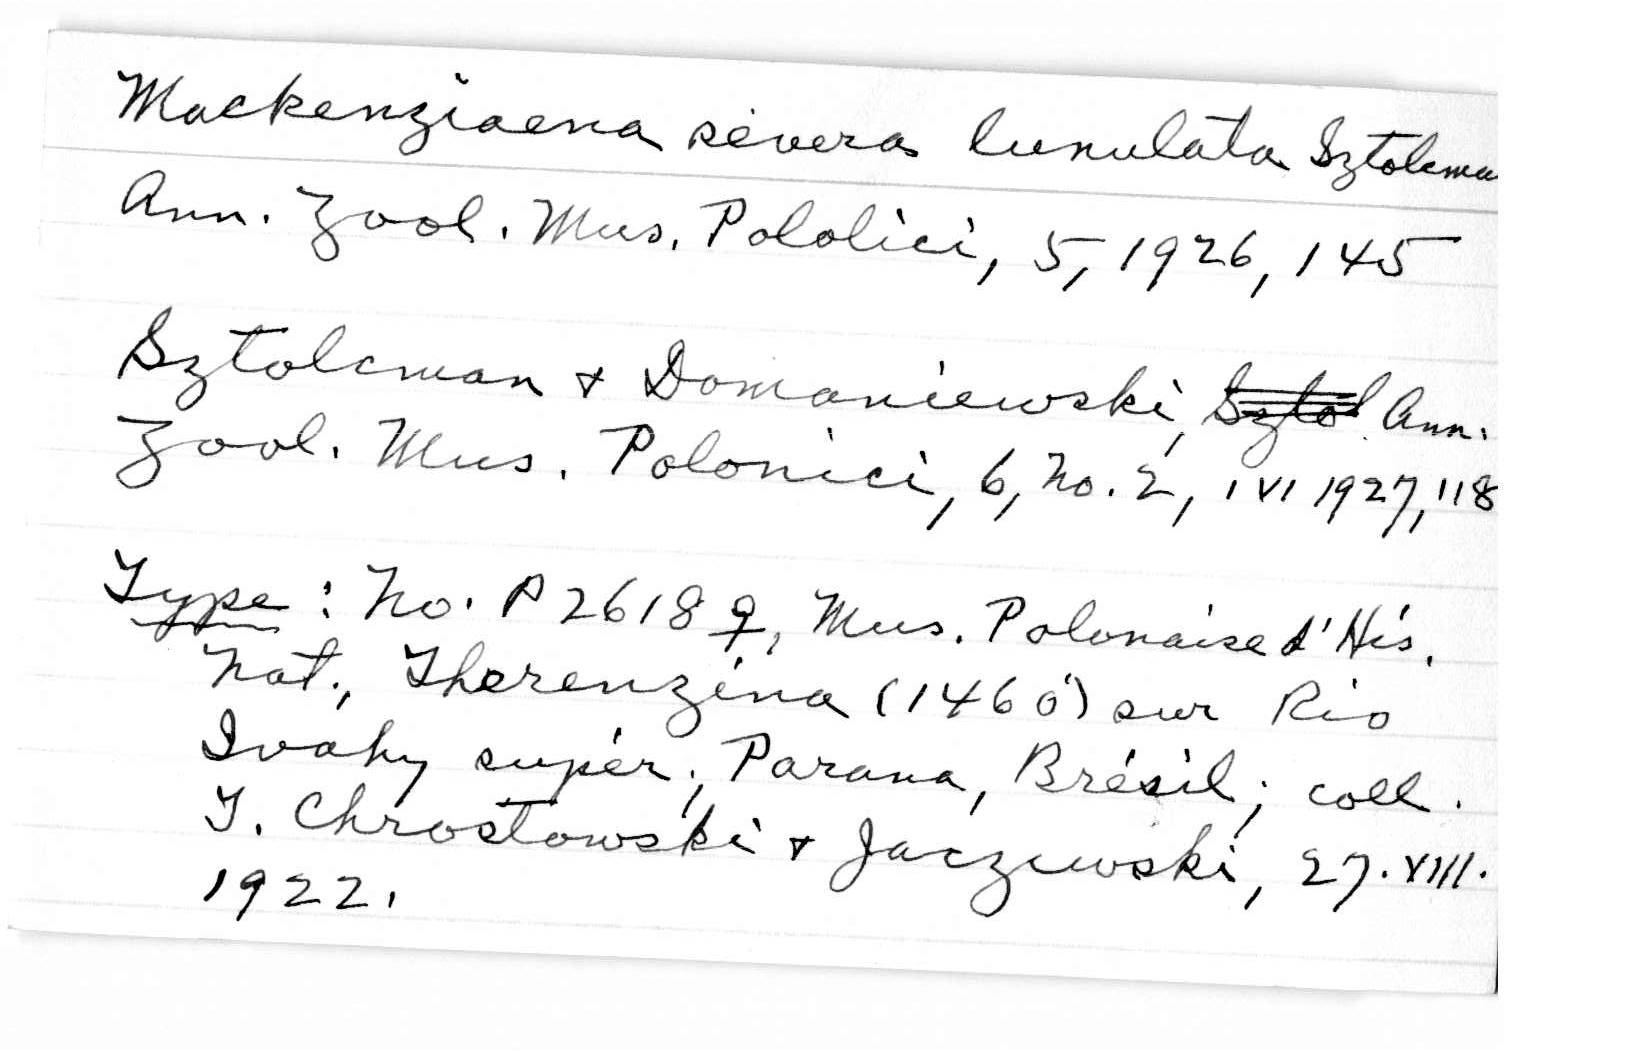 Mackenziaena severa lunulata Sztolcma
Ann. Zool. Mus. Pololici, 5, 1926, 145
Sztolcman & Domaniewski, Sztol Ann.
Zool. Mus. Polonici, 6, No. 2, 1 VI 1927, 118
Type: No. P 2618 ♀, Mus. Polonaise d'His.
Nat., Therenzina (1460') sur Rio
Ivahy supér., Parana, Brésil; coll.
T. Chrostowski & Jaczewski, 27.VIII.
1922.